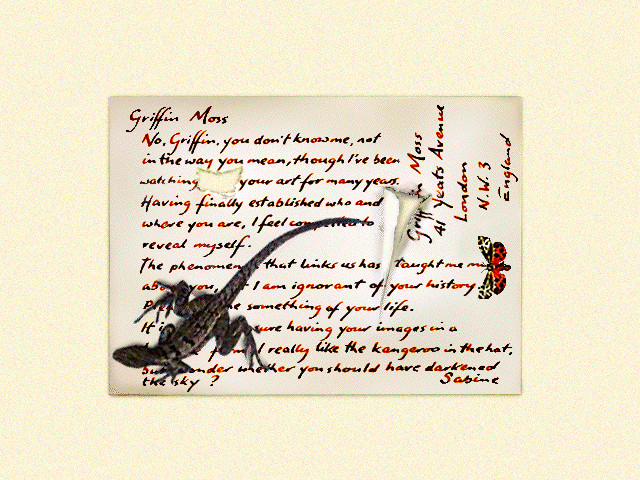 Griffin Moss
No, Griffin, you don't know me, not
in the way you mean, though I've been
watching your art for many years.
Having finally established who and
where you are, I feel to
reveal myself.
The that links us has taught me
you, I am ignorant of your history.
me something of your life.
It having your images in a
I really like the kangaroo in the hat,
whether you should have darkened
the sky ?
Sabine
Griffin Moss
41 Yeats Avenue
London
N.W.3
England